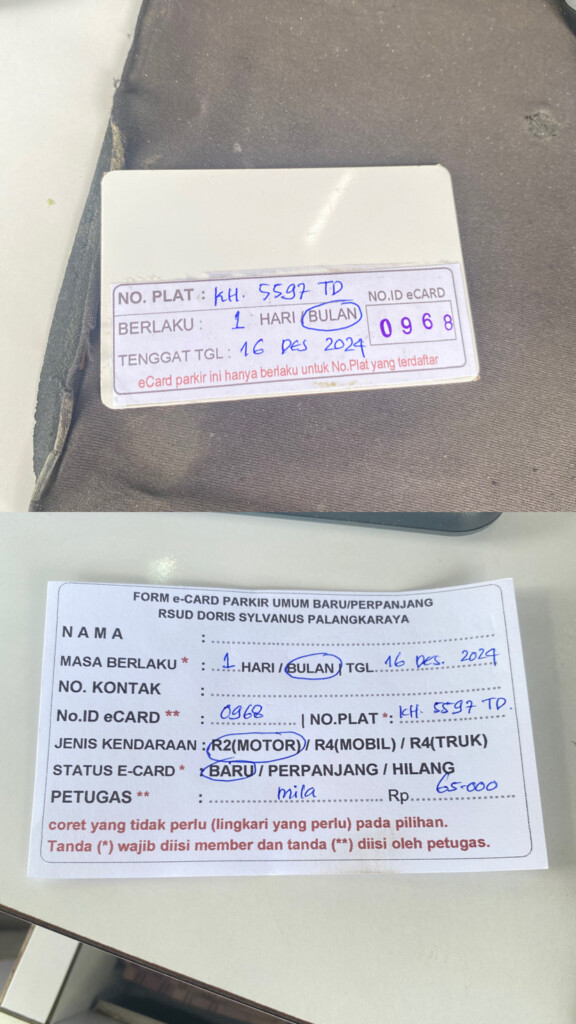 NO. PLAT : KH. 5597 TD
NO.ID eCARD
BERLAKU : 1 HARI / BULAN
0968
TENGGAT TGL : 16 DES 2024
eCard parkir ini hanya berlaku untuk No.Plat yang terdaftar
FORM e-CARD PARKIR UMUM BARU/PERPANJANG
RSUD DORIS SYLVANUS PALANGKARAYA
NAMA :
MASA BERLAKU * : 1 HARI / BULAN | TGL 16 Des. 2024
NO. KONTAK :
No.ID eCARD ** : 0968 | NO.PLAT *: KH. 5597 TD.
JENIS KENDARAAN : R2(MOTOR) / R4(MOBIL) / R4(TRUK)
STATUS E-CARD * : BARU / PERPANJANG / HILANG
PETUGAS ** : mila Rp. 65.000
coret yang tidak perlu (lingkari yang perlu) pada pilihan.
Tanda (*) wajib diisi member dan tanda (**) diisi oleh petugas.